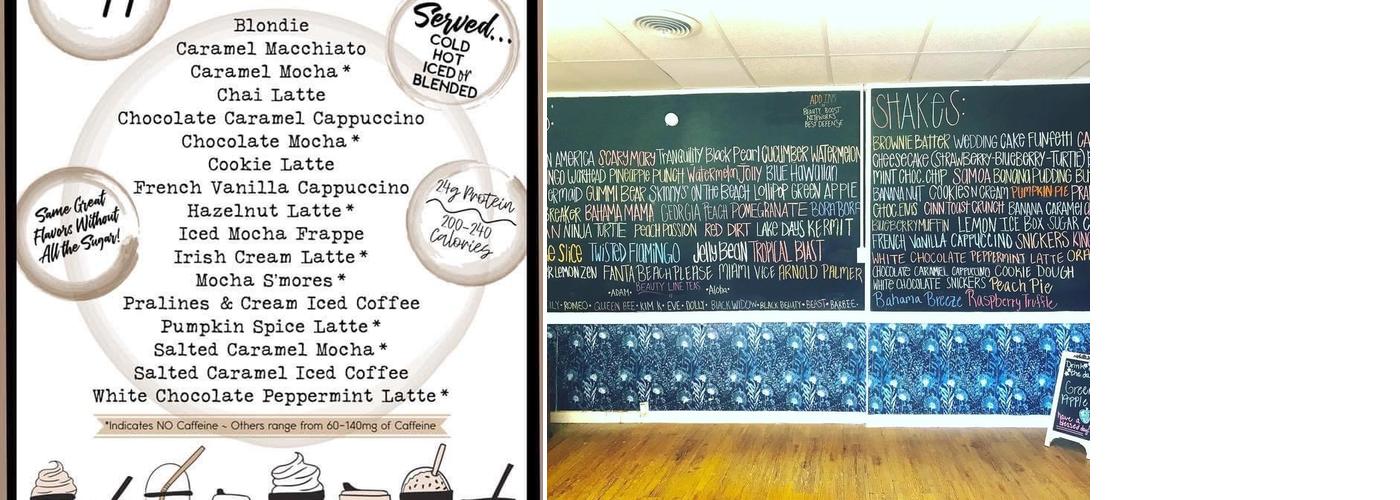 Blondie
Caramel Macchiato
Caramel Mocha*
Chai Latte
Chocolate Caramel Cappuccino
Chocolate Mocha*
Cookie Latte
French Vanilla Cappuccino
Hazelnut Latte*
Iced Mocha Frappe
Irish Cream Latte*
Mocha S'mores*
Pralines & Cream Iced Coffee
Pumpkin Spice Latte*
Salted Caramel Mocha*
Salted Caramel Iced Coffee
White Chocolate Peppermint Latte*
*Indicates NO Caffeine ~ Others range from 60-140mg of Caffeine
Served...
COLD
HOT
ICED or
BLENDED
Same Great
Flavors Without
All the Sugar!
24g Protein
200-240
Calories
ADD INS
BEAUTY BOOST
NITEWORKS
BEST DEFENSE
N AMERICA SCARY MARY TRANQUILITY Black Pearl CUCUMBER WATERMELON
NGO WARHEAD PINEAPPLE PUNCH Watermelon Jolly BLUE HAWAIIAN
ERMAID GUMMI BEAR SKINNY'S ON THE BEACH LOLLIPOP GREEN APPLE
REAKER BAHAMA MAMA GEORGIA PEACH POMEGRANATE BORA BORA
AN NINJA TURTLE PEACH PASSION RED DIRT LAKE DAYS KERMIT
E SLICE TWISTED FLAMINGO Jelly BEAN TROPICAL BLAST
R LEMON ZEN FANTA BEACH PLEASE MIAMI VICE ARNOLD PALMER
BEAUTY LINE TEAS
•ADAM• •Aloha•
ILY•ROMEO•QUEEN BEE•KIM K•EVE•DOLLY•BLACK WIDOW•BLACK BEAUTY•BEAST•BARBIE•
SHAKES:
BROWNIE BATTER WEDDING CAKE FUNFETTI CA
CHEESECAKE (STRAWBERRY-BLUEBERRY-TURTLE) B
MINT CHOC. CHIP SAMOA BANANA PUDDING BU
BANANA NUT COOKIES N CREAM PUMPKIN PIE PRA
CHOC. ELVIS CINN TOAST CRUNCH BANANA CARAMEL
BLUEBERRY MUFFIN LEMON ICE BOX SUGAR C
FRENCH VANILLA CAPPUCCINO SNICKERS KING
WHITE CHOCOLATE PEPPERMINT LATTE ORA
CHOCOLATE CARAMEL CAPPUCCINO COOKIE DOUGH
WHITE CHOCOLATE SNICKERS Peach Pie
Bahama Breeze Raspberry Truffle
Drink
of the da
Green
Apple
have a
blessed day